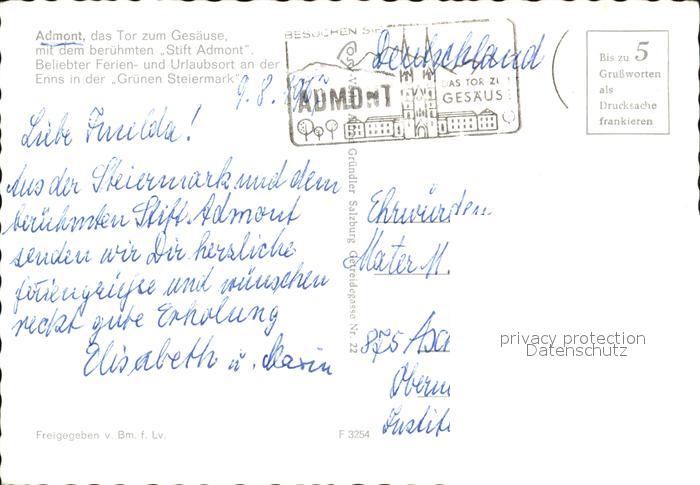 Admont, das Tor zum Gesäuse,
mit dem berühmten „Stift Admont”.
Beliebter Ferien- und Urlaubsort an der
Enns in der „Grünen Steiermark”
BESUCHEN SIE
ADMONT
DAS TOR ZUM
GESÄUSE
Deutschland
Bis zu 5
Grußworten
als
Drucksache
frankieren
9.8.
Liebe Imelda!
Aus der Steiermark und dem
berühmten Stift Admont
senden wir Dir herzliche
Feriengrüße und wünschen
recht gute Erholung
Elisabeth u. Maria
Gründler Salzburg Getreidegasse Nr. 22
Ehrwürden
Mater M.
875 Asc
Obern
Institu
privacy protection
Datenschutz
Freigegeben v. Bm. f. Lv.
F 3254